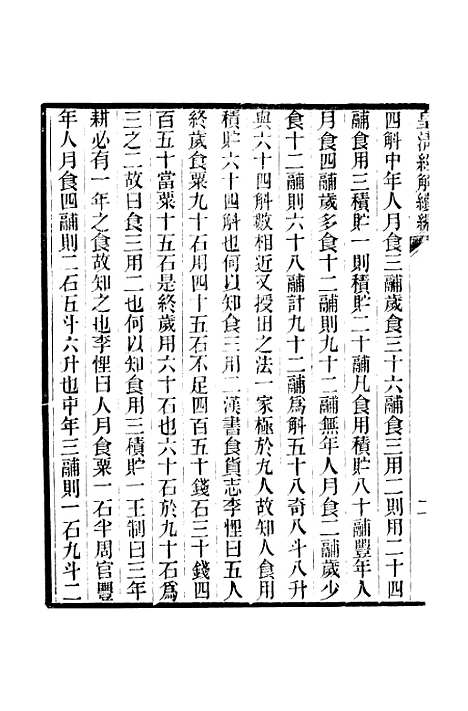 皇清經解續編
四斛中年人月食三鬴歲食三十六鬴食三用二則用二十四
鬴食用三積貯一則積貯二十鬴凡食用積貯八十鬴豐年人
月食四鬴歲多食十二鬴則九十二鬴無年人月食二鬴歲少
食十二鬴則六十八鬴計九十二鬴爲斛五十八奇八斗八升
與六十四斛數相近又授田之法一家極於九人故知人食用
積貯六十四斛也何以知食三用二漢書食貨志李悝曰五人
終歲食粟九十石用四十五石不足四百五十錢石三十錢四
百五十當粟十五石是終歲用六十石也六十石於九十石爲
三之二故曰食三用二也何以知食用三積貯一王制曰三年
耕必有一年之食故知之也李悝曰人月食粟一石半周官豐
年人月食四鬴則二石五斗六升也中年三鬴則一石九斗二